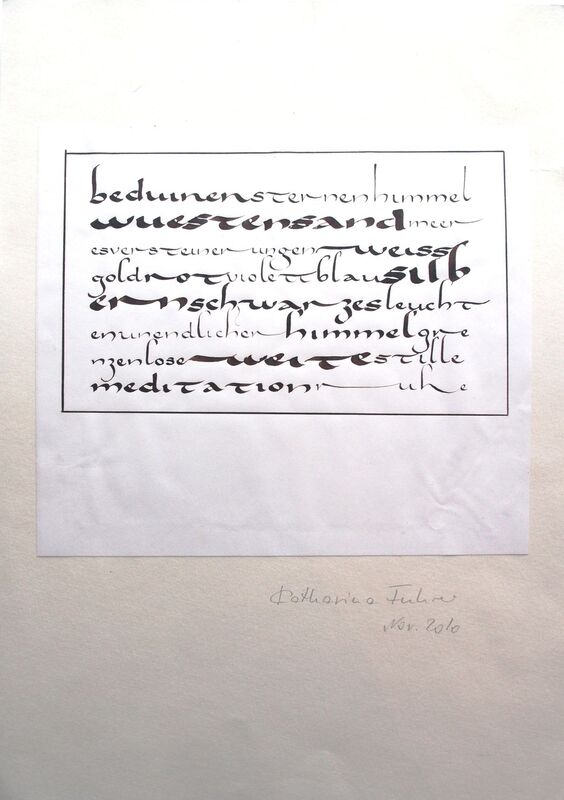 beduinensternenhimmel
wuestensandmeer
esversteinerungenweiss
goldrotviolettblausilb
ernschwarzesleucht
enunendlicherhimmelgre
nzenloseweitestille
meditationruhe
Katharina
Nov. 2010